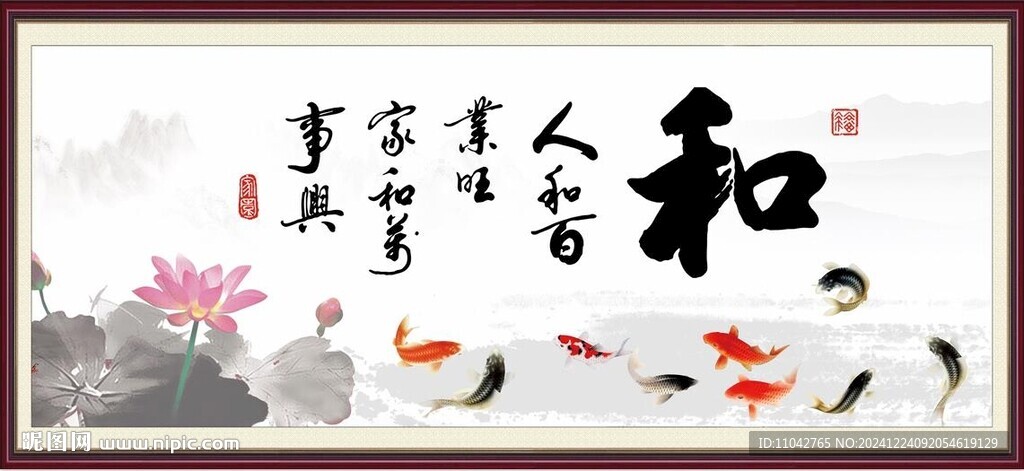 和
人和百
業旺
家和萬
事興
福
家園
昵图网 www.nipic.com
ID:11042765 NO:20241224092054619129